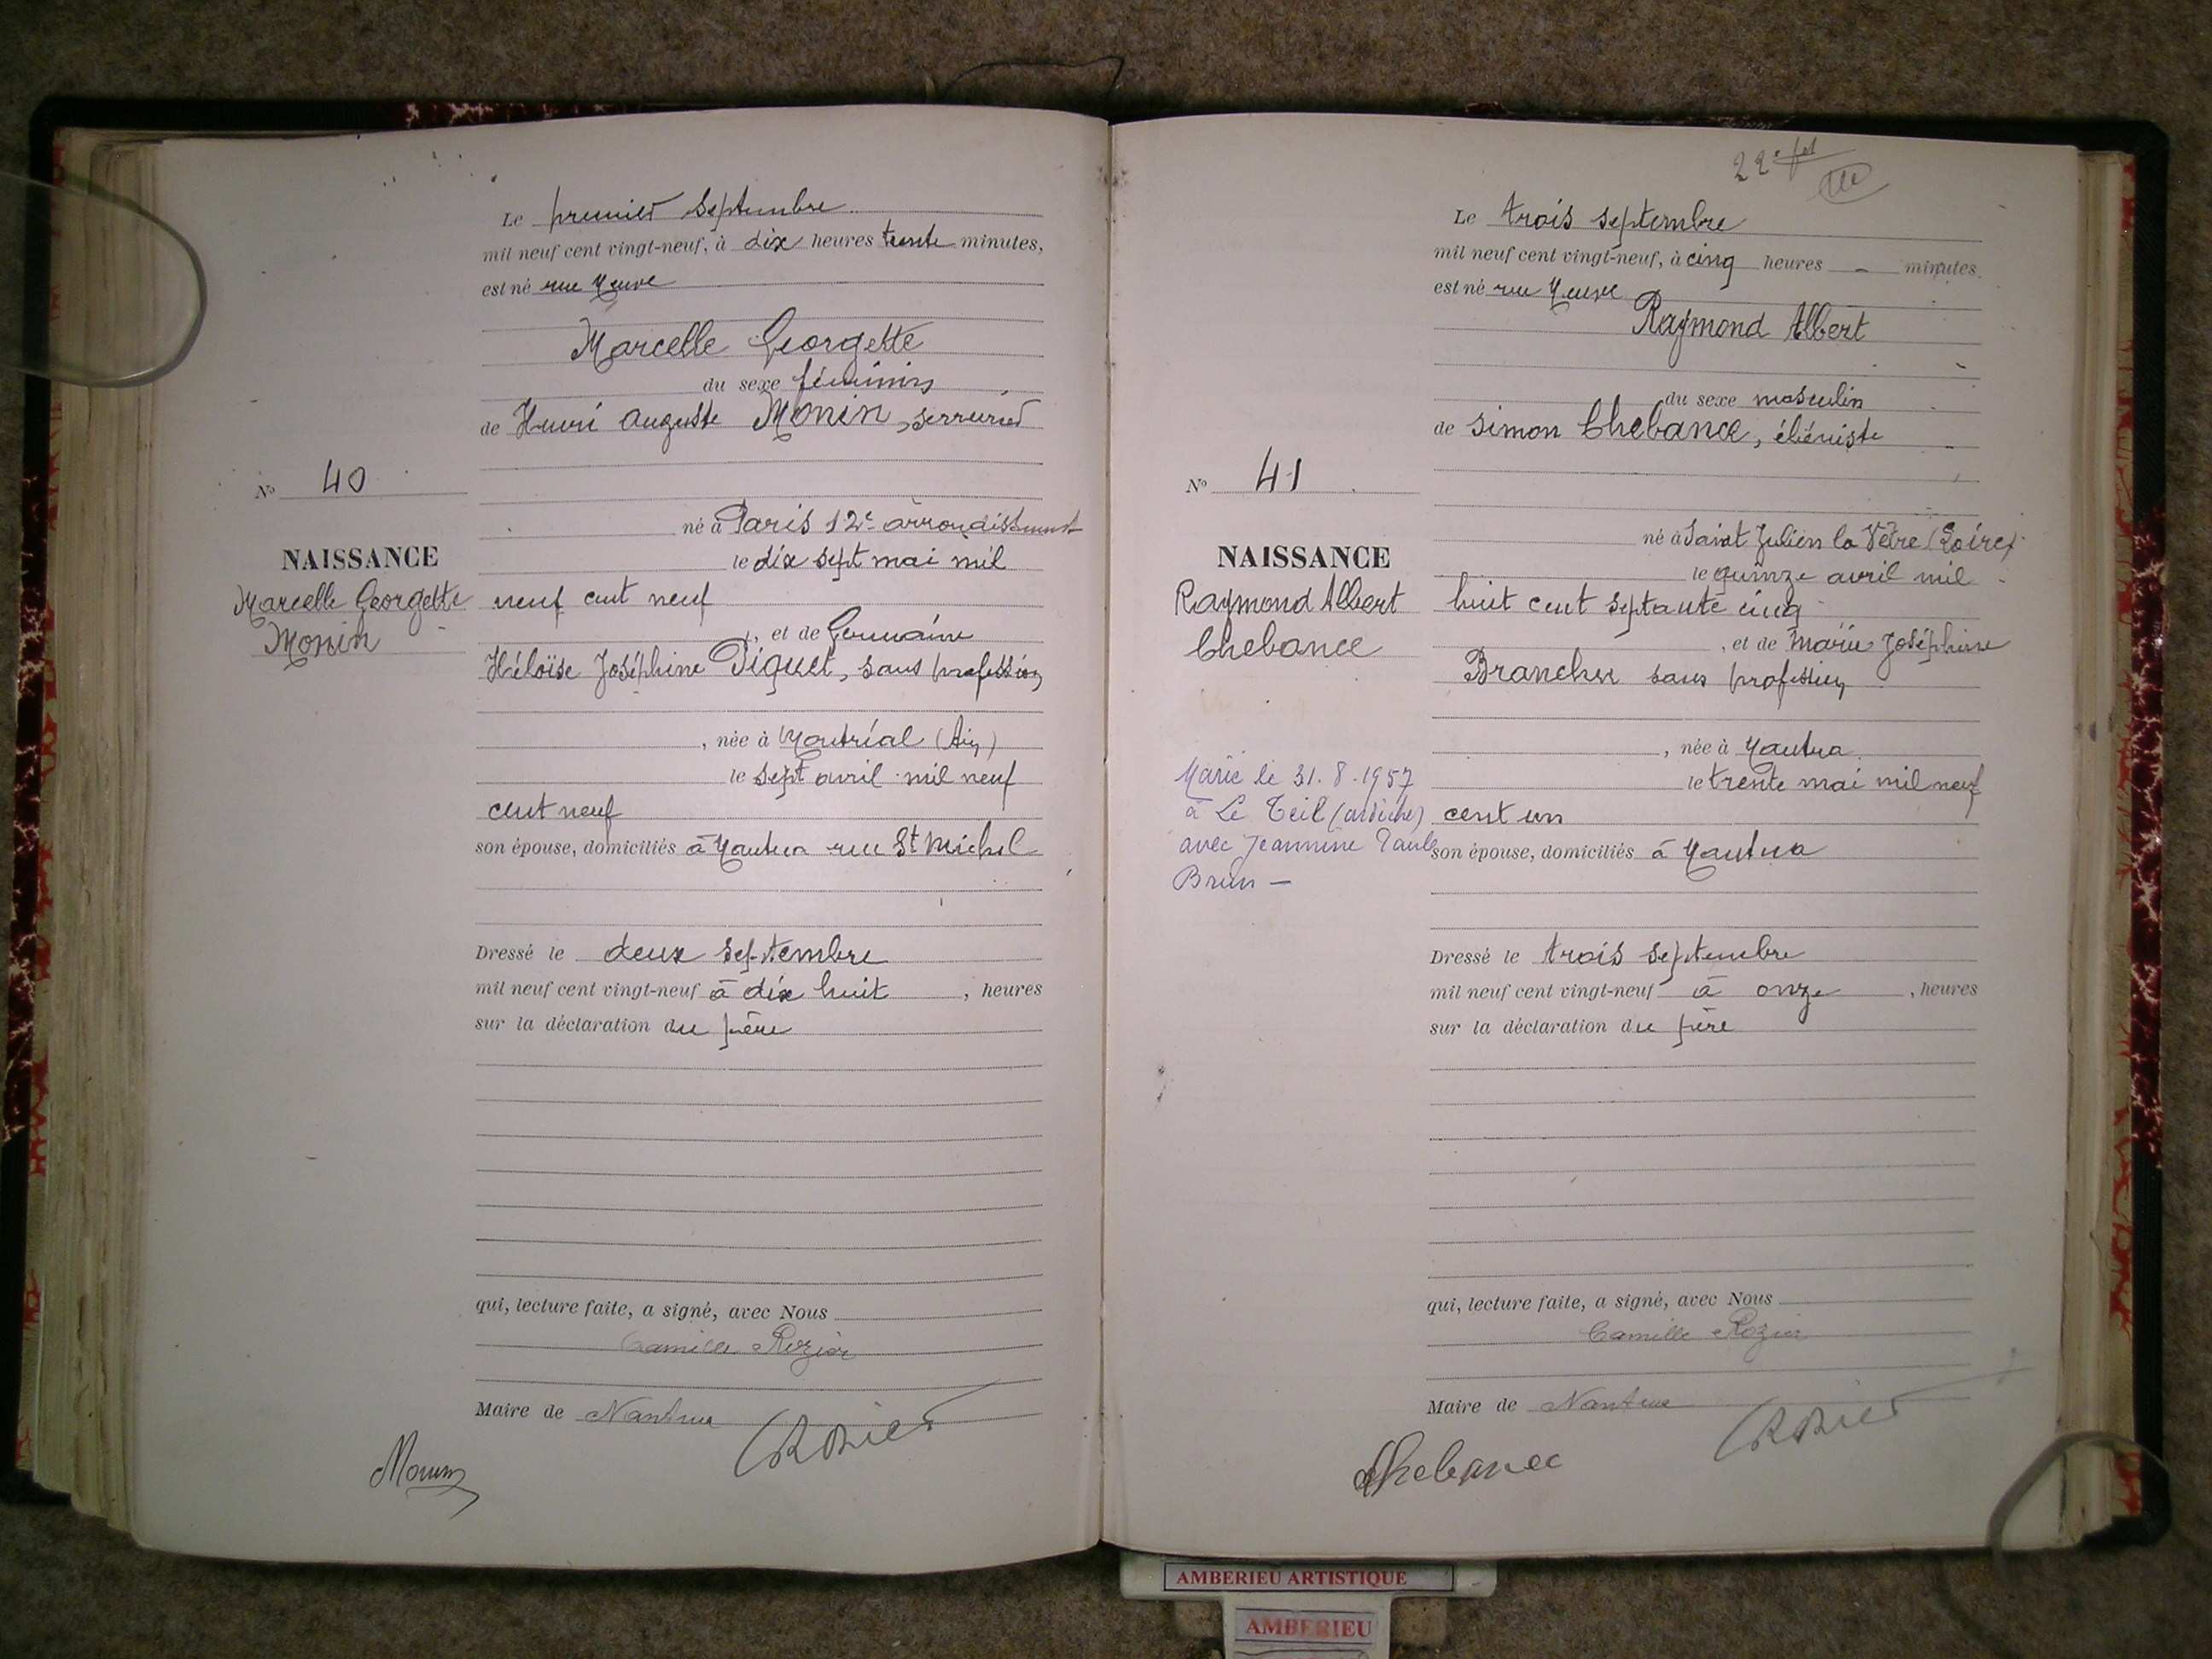 Le premier septembre
mil neuf cent vingt-neuf, à dix heures trente minutes,
est né rue Neuve
Marcelle Georgette
du sexe féminin
de Henri Auguste Monin, serrurier
né à Paris 12e arrondissement
le dix sept mai mil
neuf cent neuf
, et de Germaine
Héloïse Joséphine Piquet, sans profession
, née à Montréal (Ain)
le sept avril mil neuf
cent neuf
son épouse, domiciliés à Nantua rue St Michel
Dressé le deux septembre
mil neuf cent vingt-neuf à dix huit , heures
sur la déclaration du père
qui, lecture faite, a signé, avec Nous
Camille Rozier
Maire de Nantua
Monin
CRozier
N° 40
NAISSANCE
Marcelle Georgette
Monin
22e fet
Le trois septembre
mil neuf cent vingt-neuf, à cinq heures - minutes.
est né rue Neuve
Raymond Albert
du sexe masculin
de Simon Chebance, ébéniste
né à Saint Julien la Vêtre (Loire)
le quinze avril mil
huit cent septante cinq
, et de Marie Joséphine
Brancher sans profession
, née à Nantua
le trente mai mil neuf
cent un
son épouse, domiciliés à Nantua
Dressé le trois septembre
mil neuf cent vingt-neuf à onze , heures
sur la déclaration du père
qui, lecture faite, a signé, avec Nous
Camille Rozier
Maire de Nantua
Chebance
CRozier
N° 41
NAISSANCE
Raymond Albert
Chebance
Marié le 31.8.1957
à Le Teil (ardèche)
avec Jeannine Paule
Brun -
AMBERIEU ARTISTIQUE
AMBERIEU